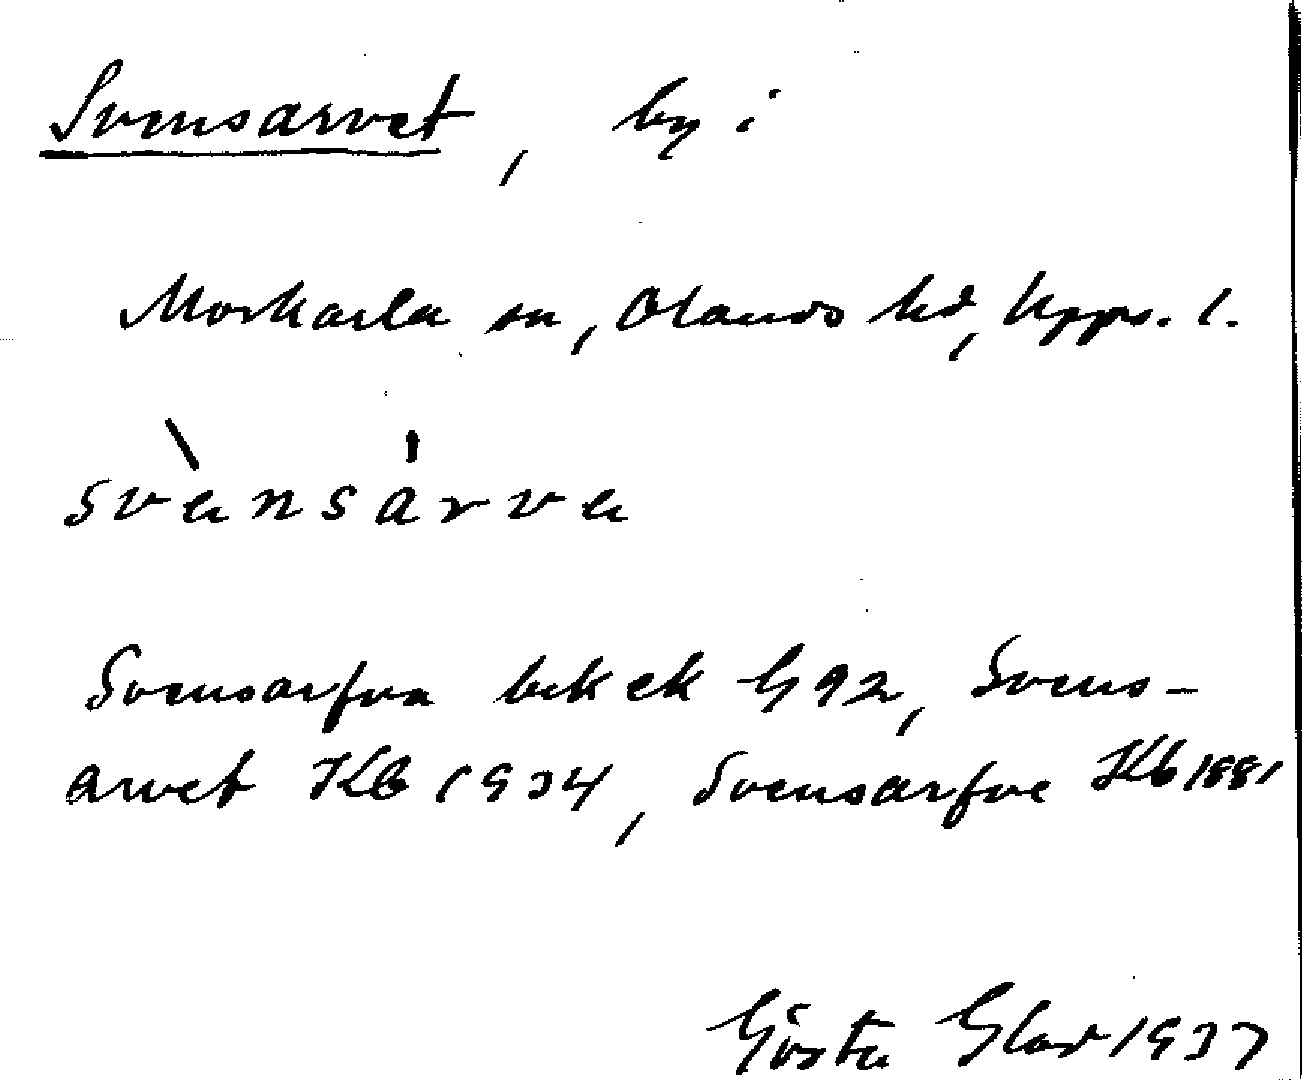 Svensarvet, by i
Morkarla sn, Olands hd, Upps. l.
svènsárva
Svensarfva bek ek G 92, Svens-
arvet Kb 1934, Svensarfve Kb 1881
Gösta Glad 1937